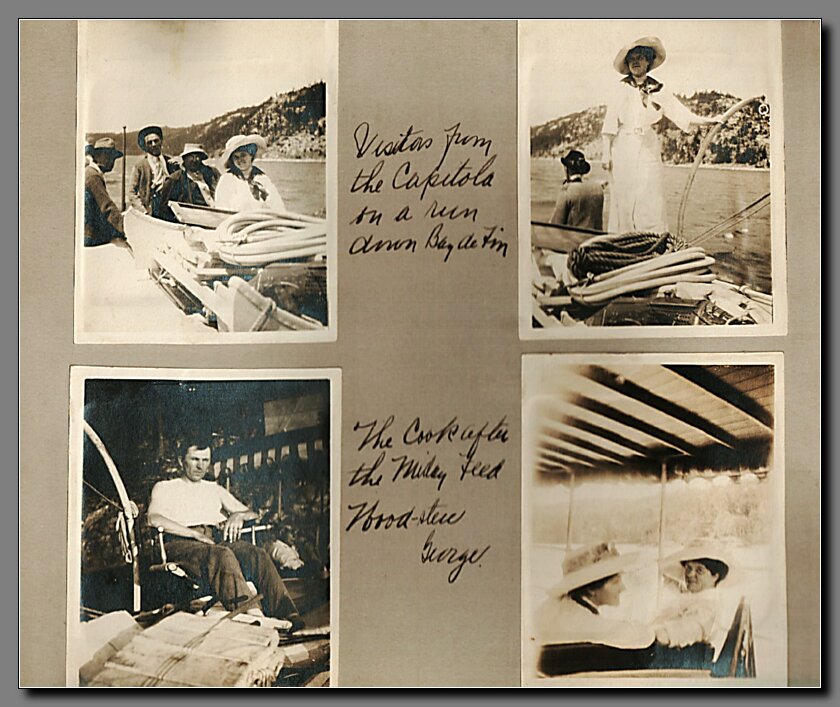 Visitors from
the Capitola
on a run
down Bay de Fin
The Cook after
the Miday Feed
Wood-stew
George.